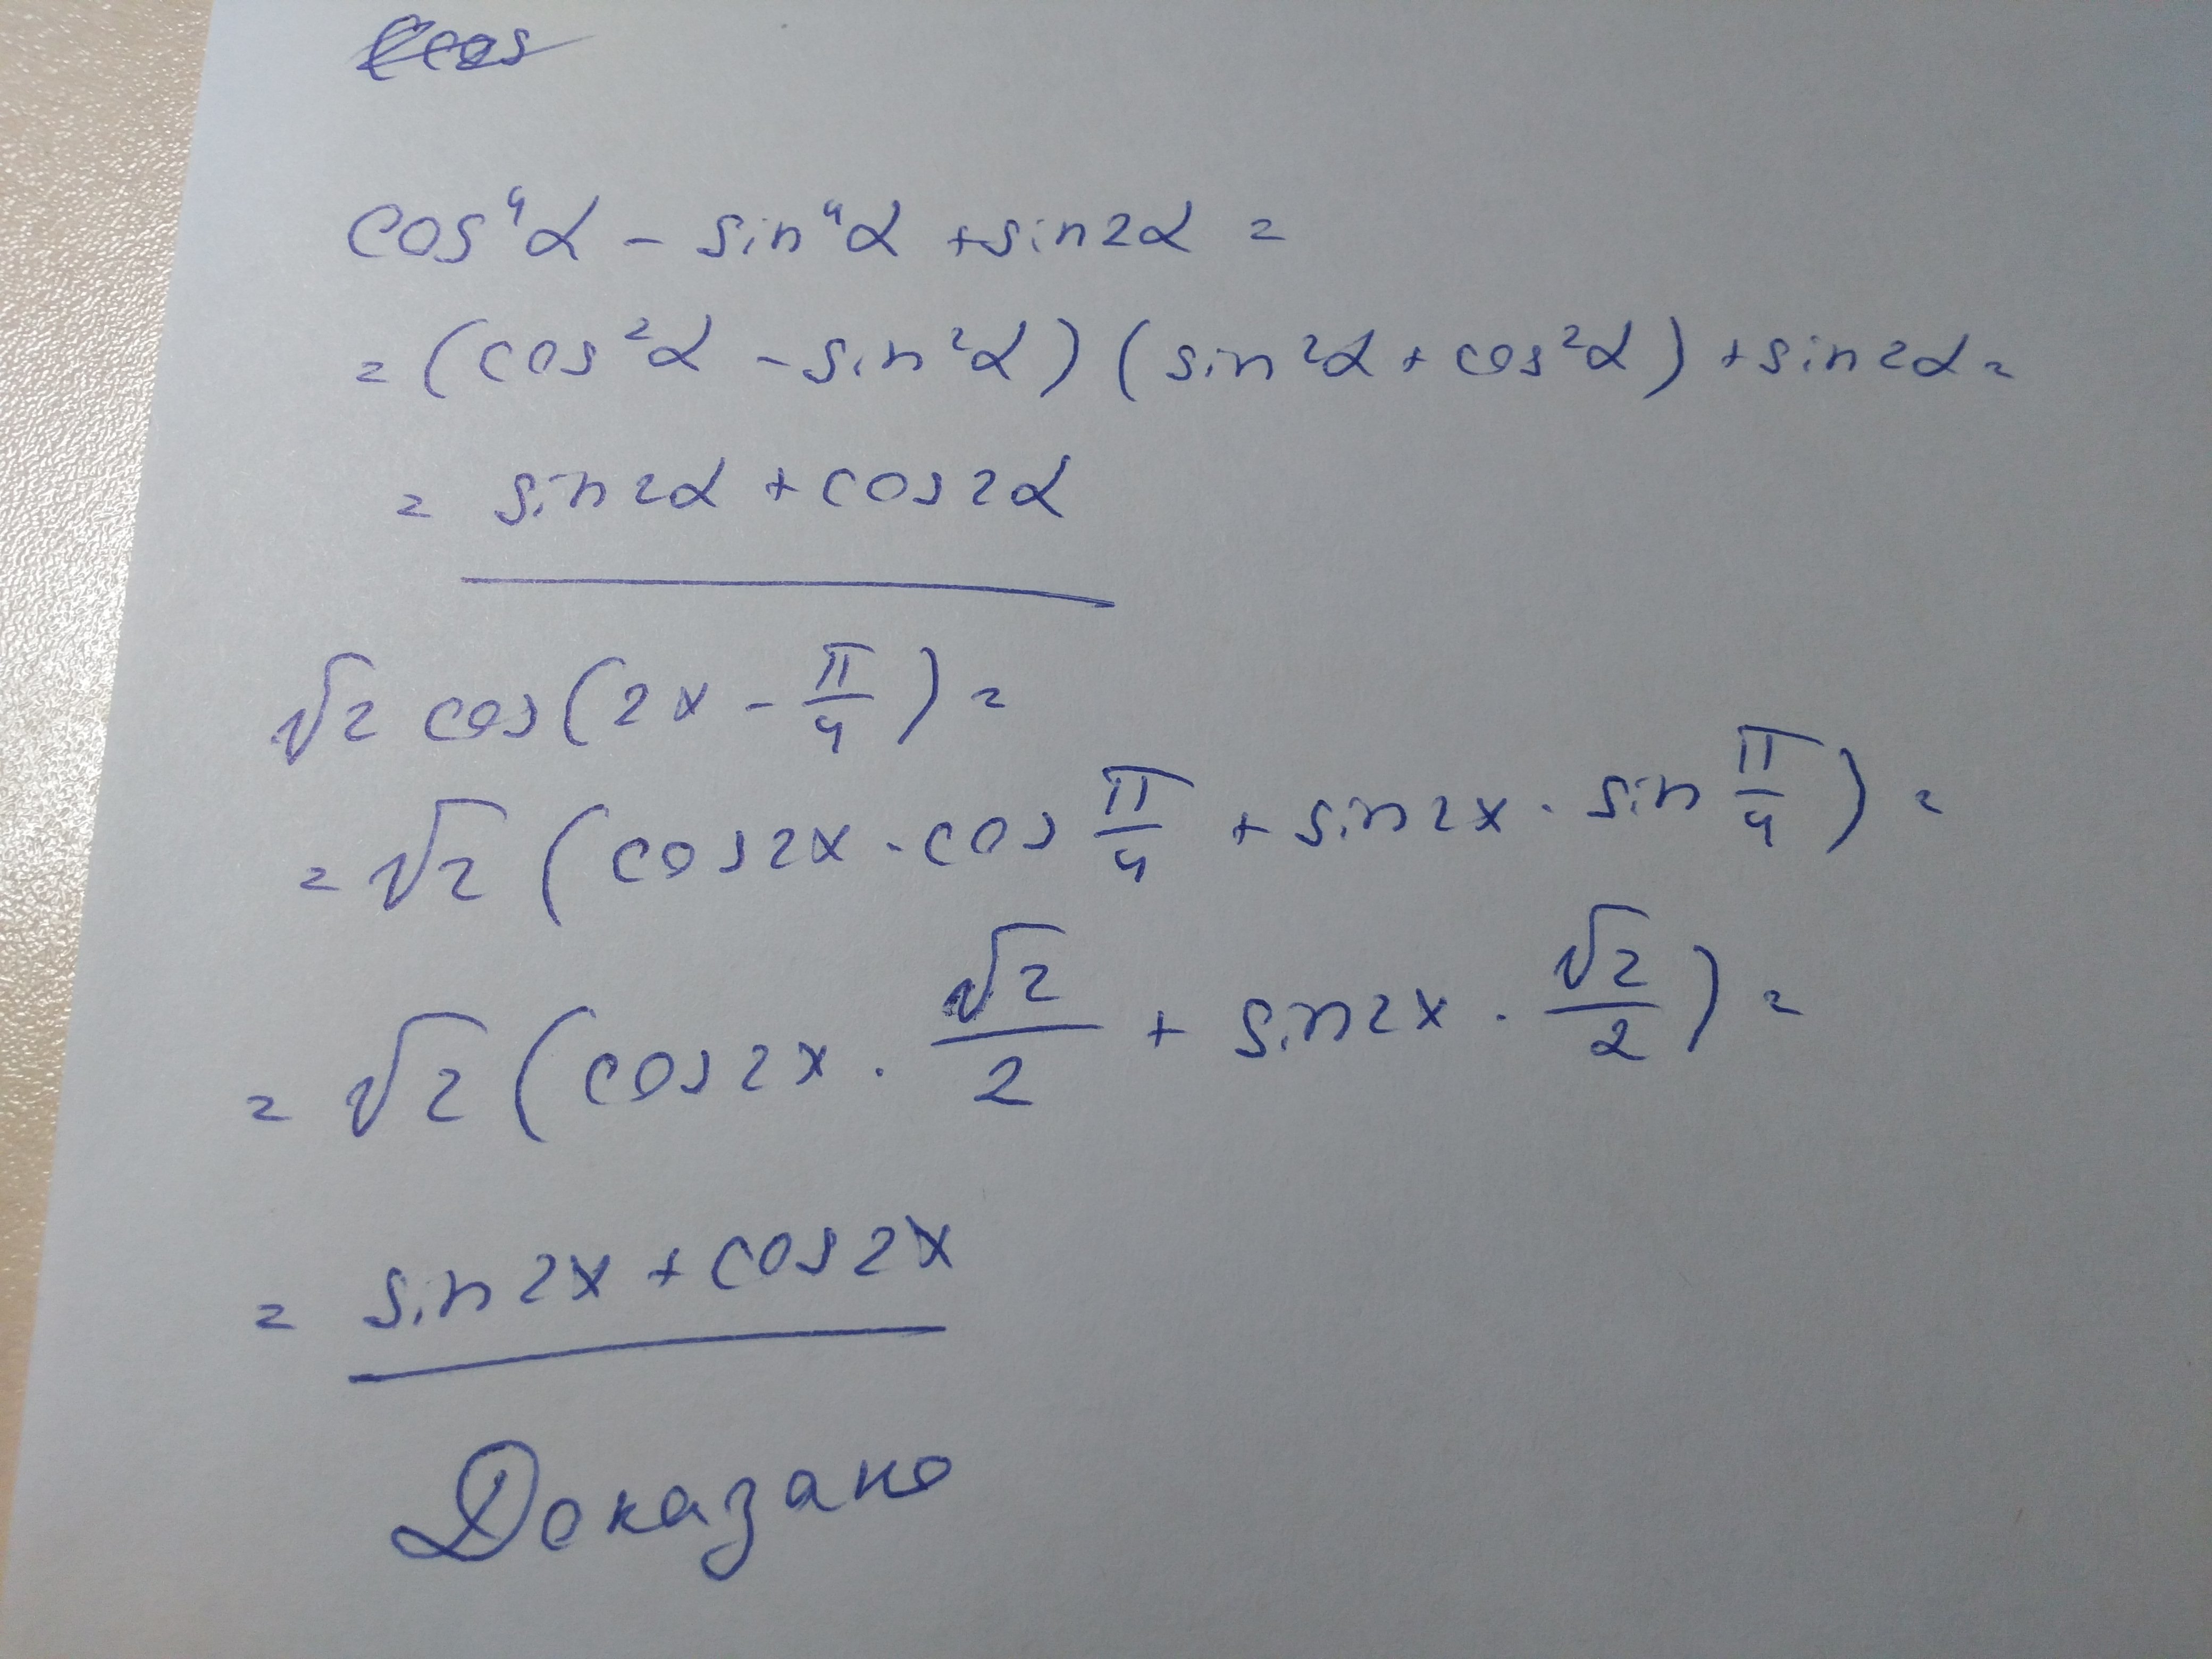 cos
cos⁴α - sin⁴α + sin2α =
= (cos²α - sin²α)(sin²α + cos²α) + sin2α =
= sin2α + cos2α
√2 cos(2x - π/4) =
= √2 (cos2x · cos π/4 + sin2x · sin π/4) =
= √2 (cos2x · √2/2 + sin2x · √2/2) =
= sin2x + cos2x
Доказано